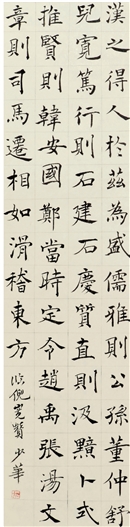 漢之得人於茲為盛儒雅則公孫董仲舒
兒寬篤行則石建石慶質直則汲黯卜式
推賢則韓安國鄭當時定令趙禹張湯文
章則司馬遷相如滑稽東方
臨倪寬贊 少華